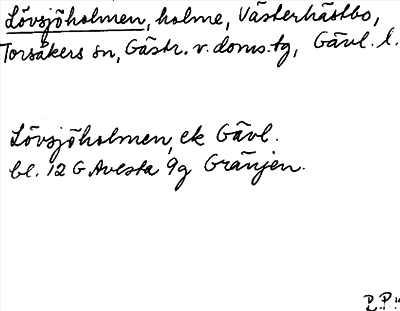 Lövsjöholmen, holme, Västerhästbo,
Torsåkers sn, Gästr. v. doms. tg, Gävl. l.
Lövsjöholmen, ek Gävl.
bl. 12 G Avesta 9g Gränjen.
R.P.